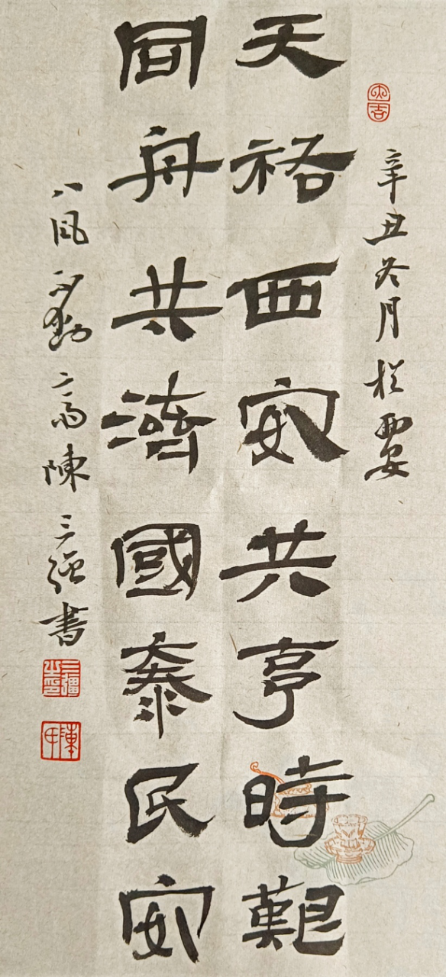 大吉
辛丑冬月於西安
天祐西安共亨時艱
同舟共濟國泰民安
八風不動齋陳三强書